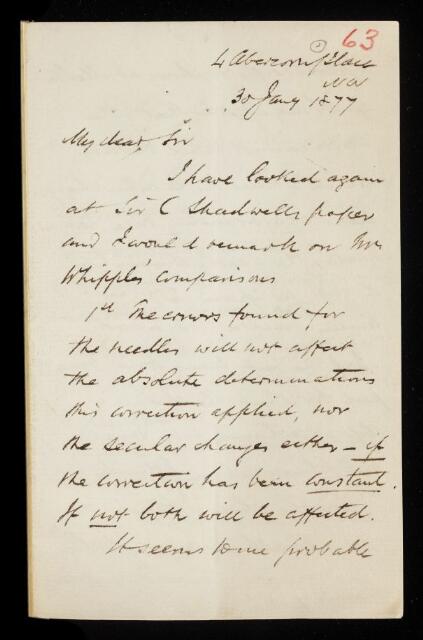 63
4 Abercorn Place
NW
30 Jany 1877
My dear Sir
I have looked again
at Sir C Shadwell's paper
and I would remark on Mr
Whipple's comparisons
1st The errors found for
the needles will not affect
the absolute determinations
this correction applied, nor
the secular changes either – if
the correction has been constant.
If not both will be affected.
It seems to me probable